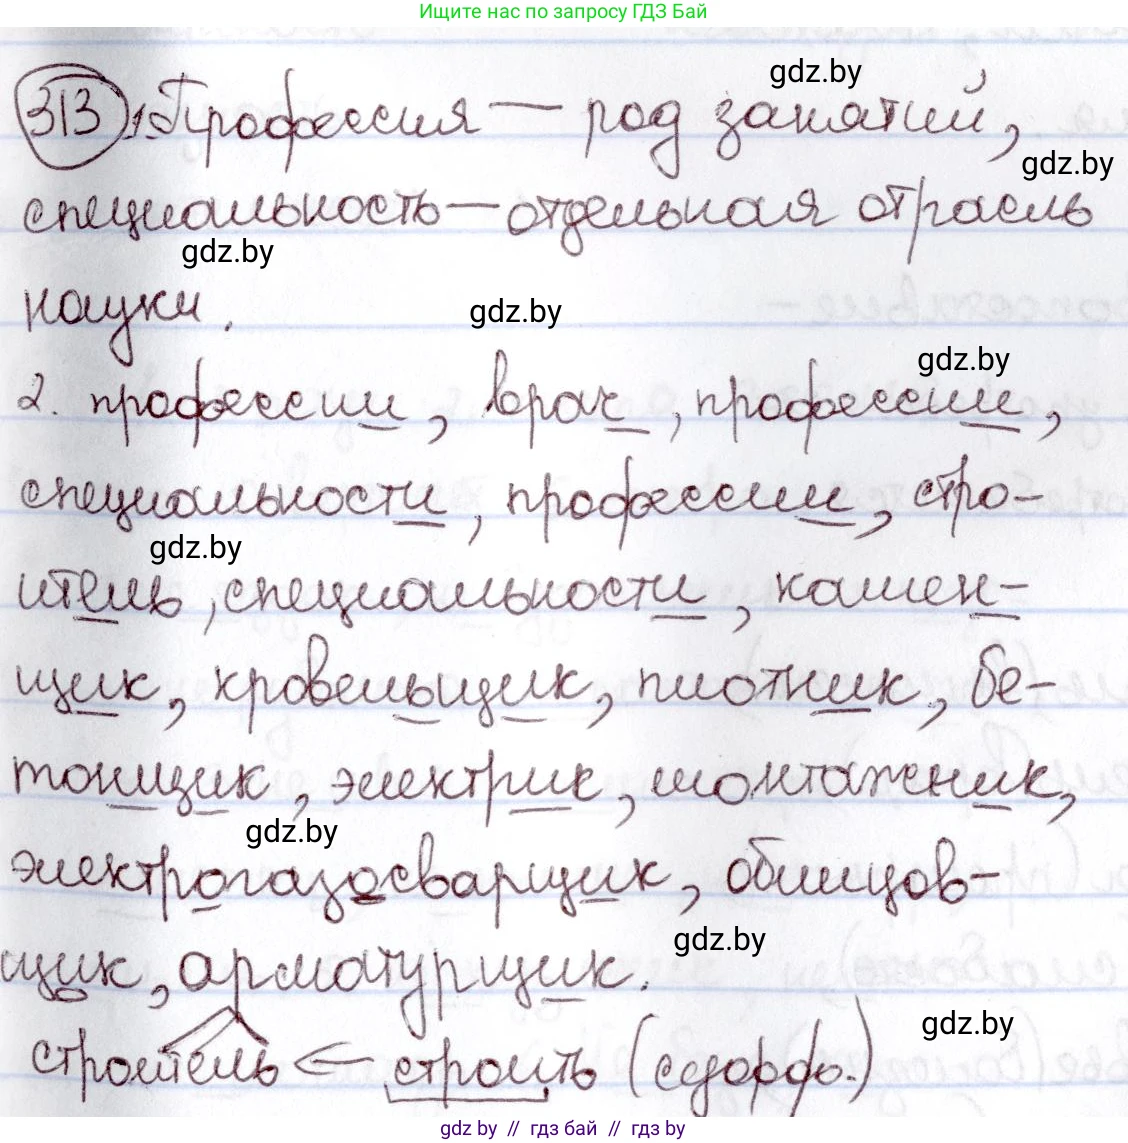 Ищите нас по запросу ГДЗ Бай
313 1. Профессия — род занятий,
gdz.by
gdz.by
специальность — отдельная отрасль
gdz.by
науки.
gdz.by
gdz.by
2. профессии, врач, профессии,
специальности, профессии, стро-
gdz.by
итель, специальности, камен-
щик, кровельщик, плотник, бе-
тонщик, электрик, монтажник,
gdz.by
электрогазосварщик, облицов-
gdz.by
щик, арматурщик.
gdz.by
строитель ← строить (суфф.)
gdz by // гдз бай // гдз by